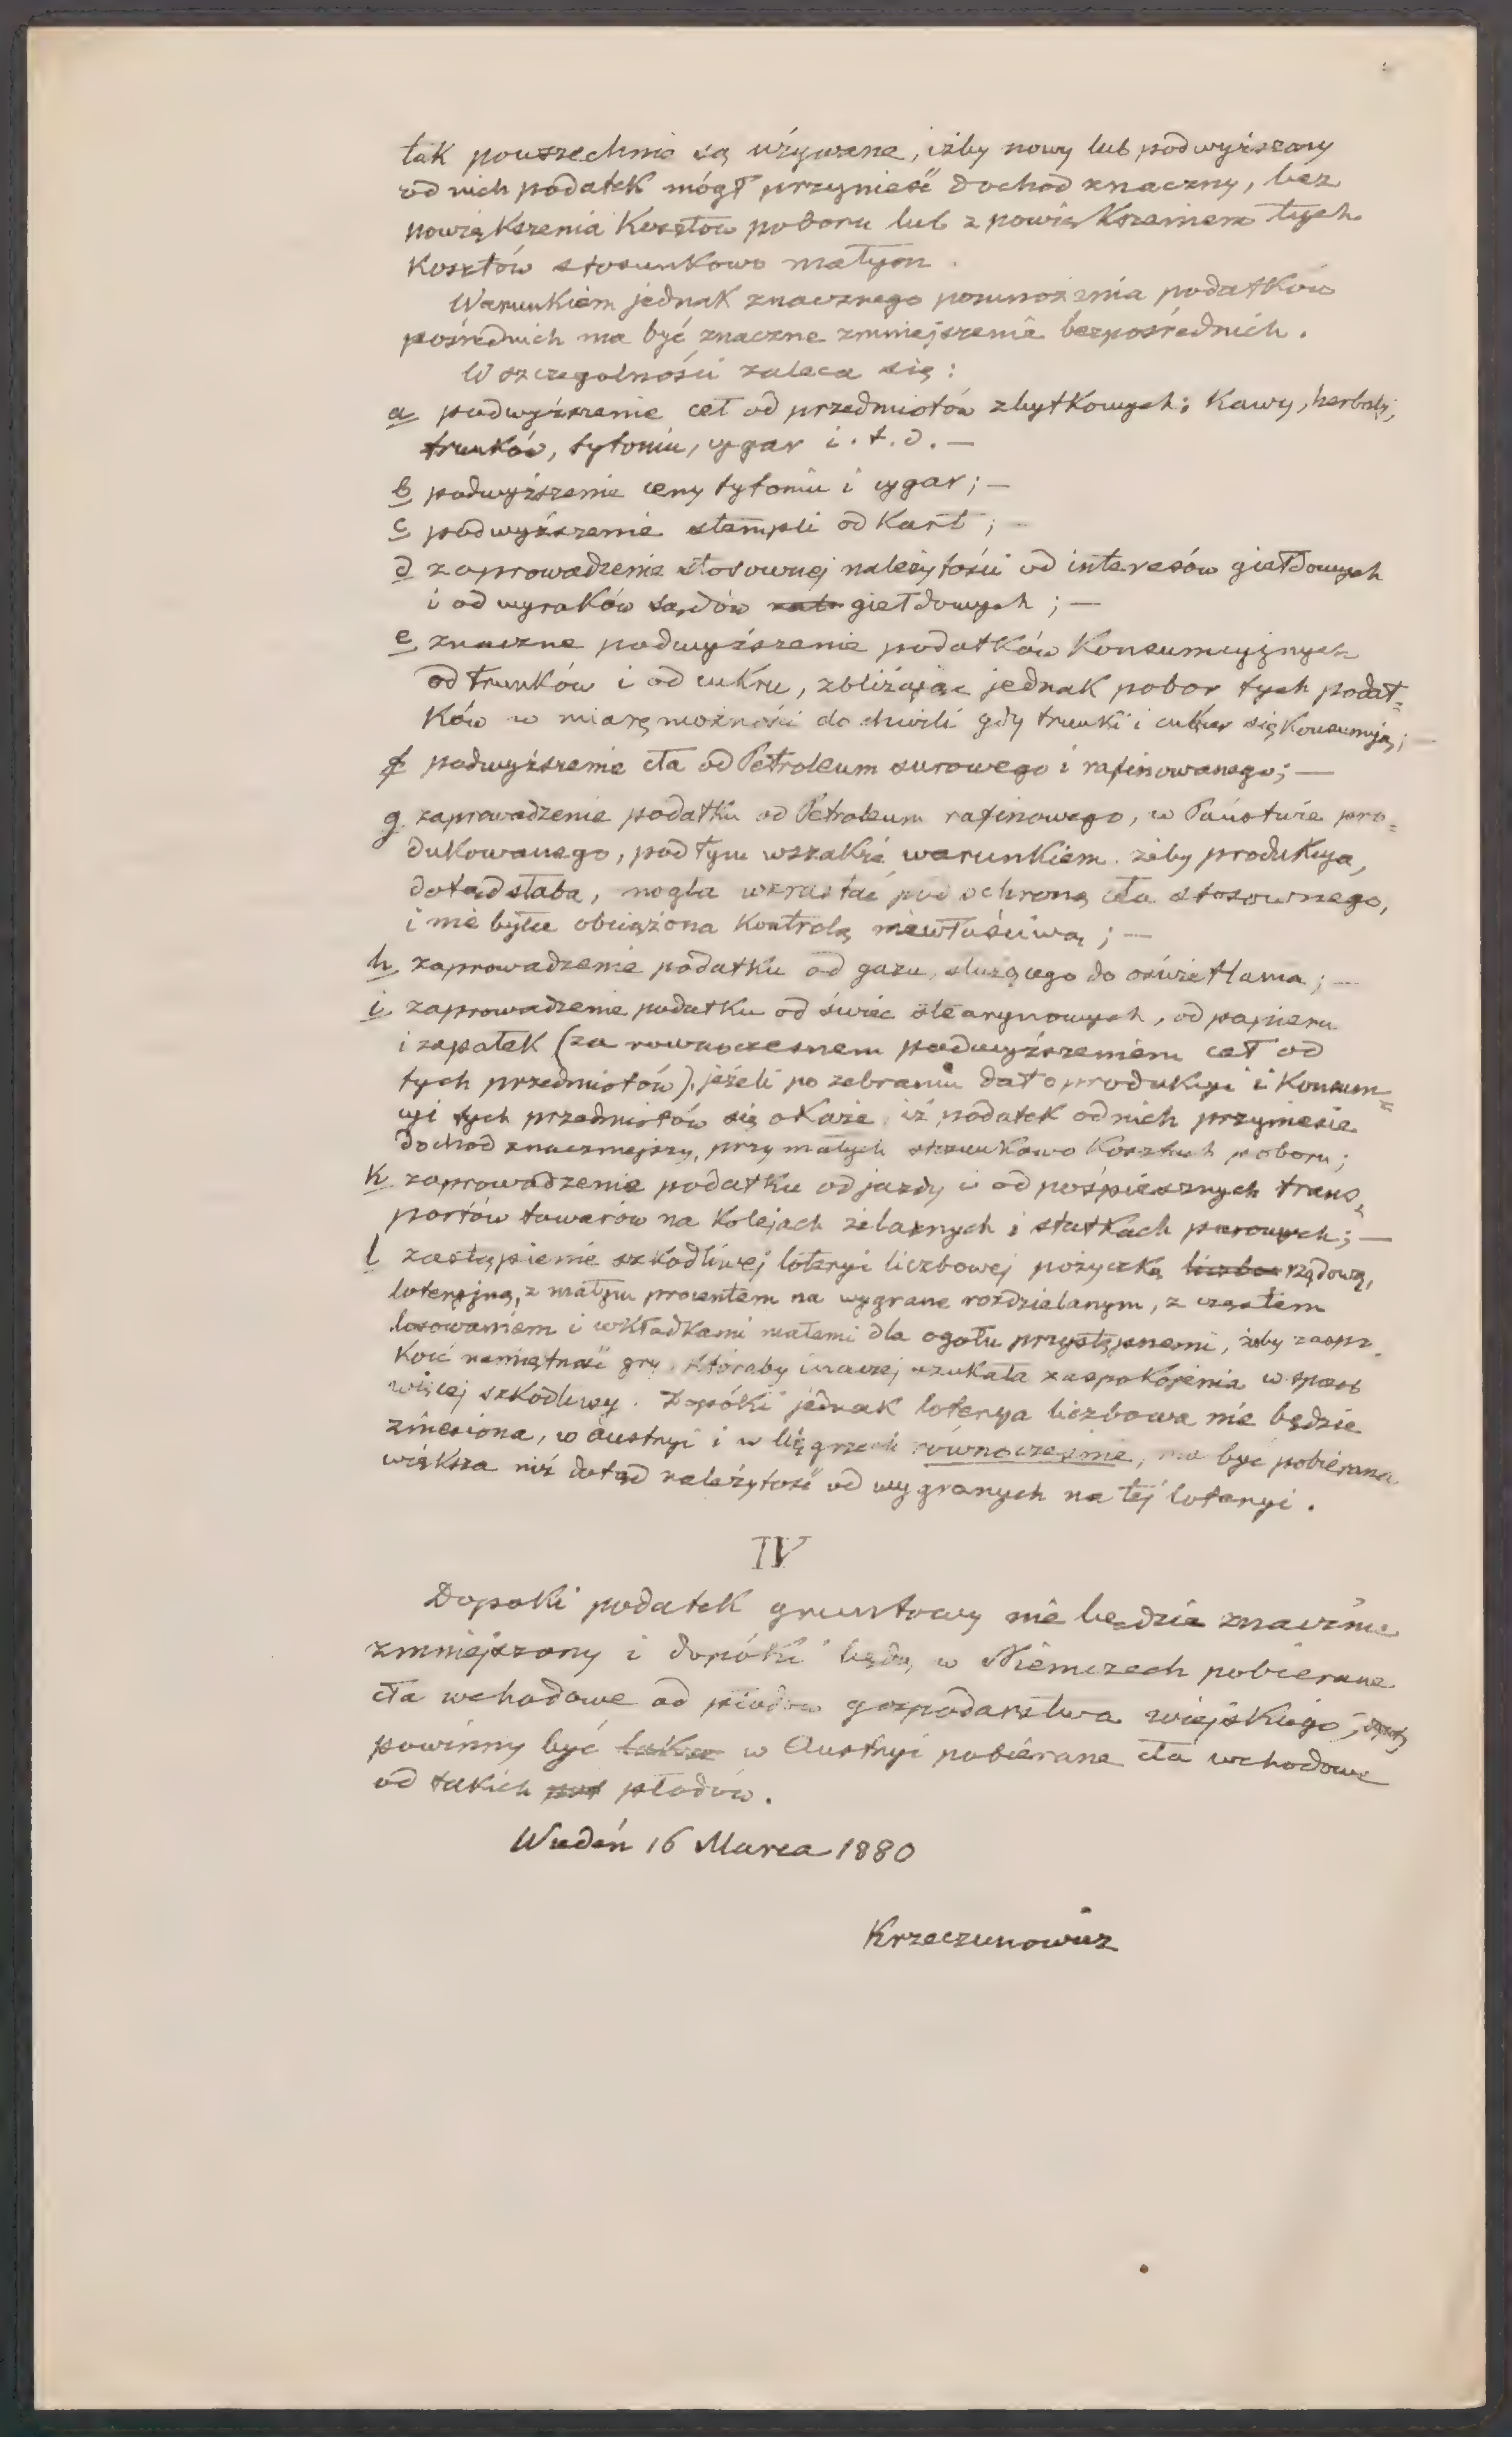 tak powszechnie są używane, iżby nowy lub podwyższony
od nich podatek mógł przynieść dochod znaczny, bez
powiększenia Kosztow poboru lub z powiększeniem tych
Kosztów stosunkowo małym.
Warunkiem jednak znacznego pomnożenia podatków
pośrednich ma być znaczne zmniejszenie bezpośrednich.
W szczegolności zaleca się:
a podwyższenie ceł od przedmiotów zbytkowych: Kawy, herbaty,
trunków, tytoniu, cygar i.t.d. —
b podwyższenie ceny tytoniu i cygar; —
c podwyższenie stempli od Kart; —
d zaprowadzenie stosownej należytości od interesów giełdowych
i od wyroków sądów giełdowych; —
e znaczne podwyższenie podatków Konsumcyjnych
od trunków i od cukru, zbliżając jednak pobor tych podat=
ków w miarę możności do chwili gdy trunki i cukier się Konsumują; —
f podwyższenie cła od Petroleum surowego i rafinowanego; —
g zaprowadzenie podatku od Petroleum rafinowego, w Państwie pro=
dukowanego, pod tym wszakże warunkiem żeby produkcya,
dotąd słaba, mogła wzrastać pod ochroną cła stosownego,
i nie była obciążona Kontrolą niewłaściwą; —
h zaprowadzenie podatku od gazu służącego do oświetlania; —
i zaprowadzenie podatku od świec stearynowych, od papieru
i zapałek (za rownoczesnem podwyższeniem ceł od
tych przedmiotów), jeżeli po zebraniu dat o produkcyi i Konsum=
cyi tych przedmiotów się okaże iż podatek od nich przyniesie
dochod znaczniejszy, przy małych stosunkowo Kosztach poboru;
k zaprowadzenie podatku od jazdy i od pośpiesznych trans=
portów towarów na Kolejach żelaznych i statkach parowych; —
l zastąpienie szkodliwej loteryi liczbowej pożyczką liczbo rządową,
loteryjną, z małym procentem na wygrane rozdzielanym, z częstem
losowaniem i wkładkami małemi dla ogołu przystępnemi, żeby zaspo
koić namiętność gry, któraby inaczej szukała zaspokojenia w sposob
więcej szkodliwy. Dopóki jednak loterya liczbowa nie będzie
zniesiona, w Austryi i w Węgrzech równocześnie, ma być pobierana
większa niż dotąd należytość od wygranych na tej loteryi.
IV
Dopoki podatek gruntowy nie będzie znacznie
zmniejszony i dopóki będą w Niemczech pobierane
cła wchodowe od płodow gospodarstwa wiejskiego,
powinny być w Austryi pobierane cła wchodowe
od takich płodów.
Wiedeń 16 Marca 1880
Krzeczunowicz